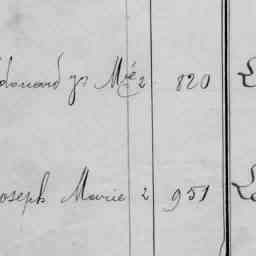 douard ys Mie 2 820 L
oseph Marie 2 951 La